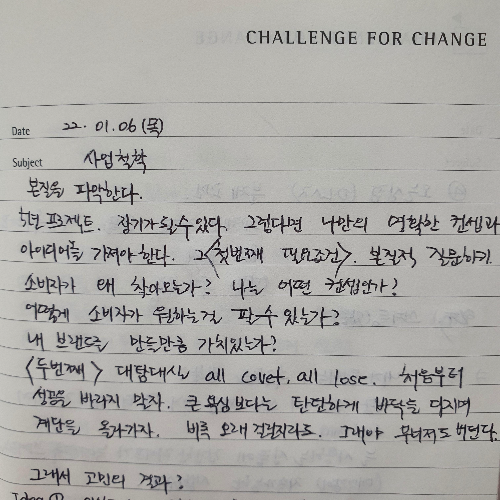 CHALLENGE FOR CHANGE
Date 22. 01. 06 (목)
Subject 사업철학
본질을 파악한다.
5년 프로젝트. 장기가 될 수 있다. 그렇다면 나만의 명확한 컨셉과
아이디어를 가져야한다. 그 <첫번째 필요조건>. 본질적 질문하기.
소비자가 왜 찾아오는가? 나는 어떤 컨셉인가?
어떻게 소비자가 원하는걸 팔 수 있는가?
내 브랜드를 만들만큼 가치있는가?
<두번째> 대담대실 all covet, all lose. 처음부터
성공을 바라지 말자. 큰 욕심보다는 탄탄하게 바닥을 다지며
계단을 올라가자. 비록 오래 걸릴지라도. 그래야 무너져도 버틴다.
그래서 고민의 결과?